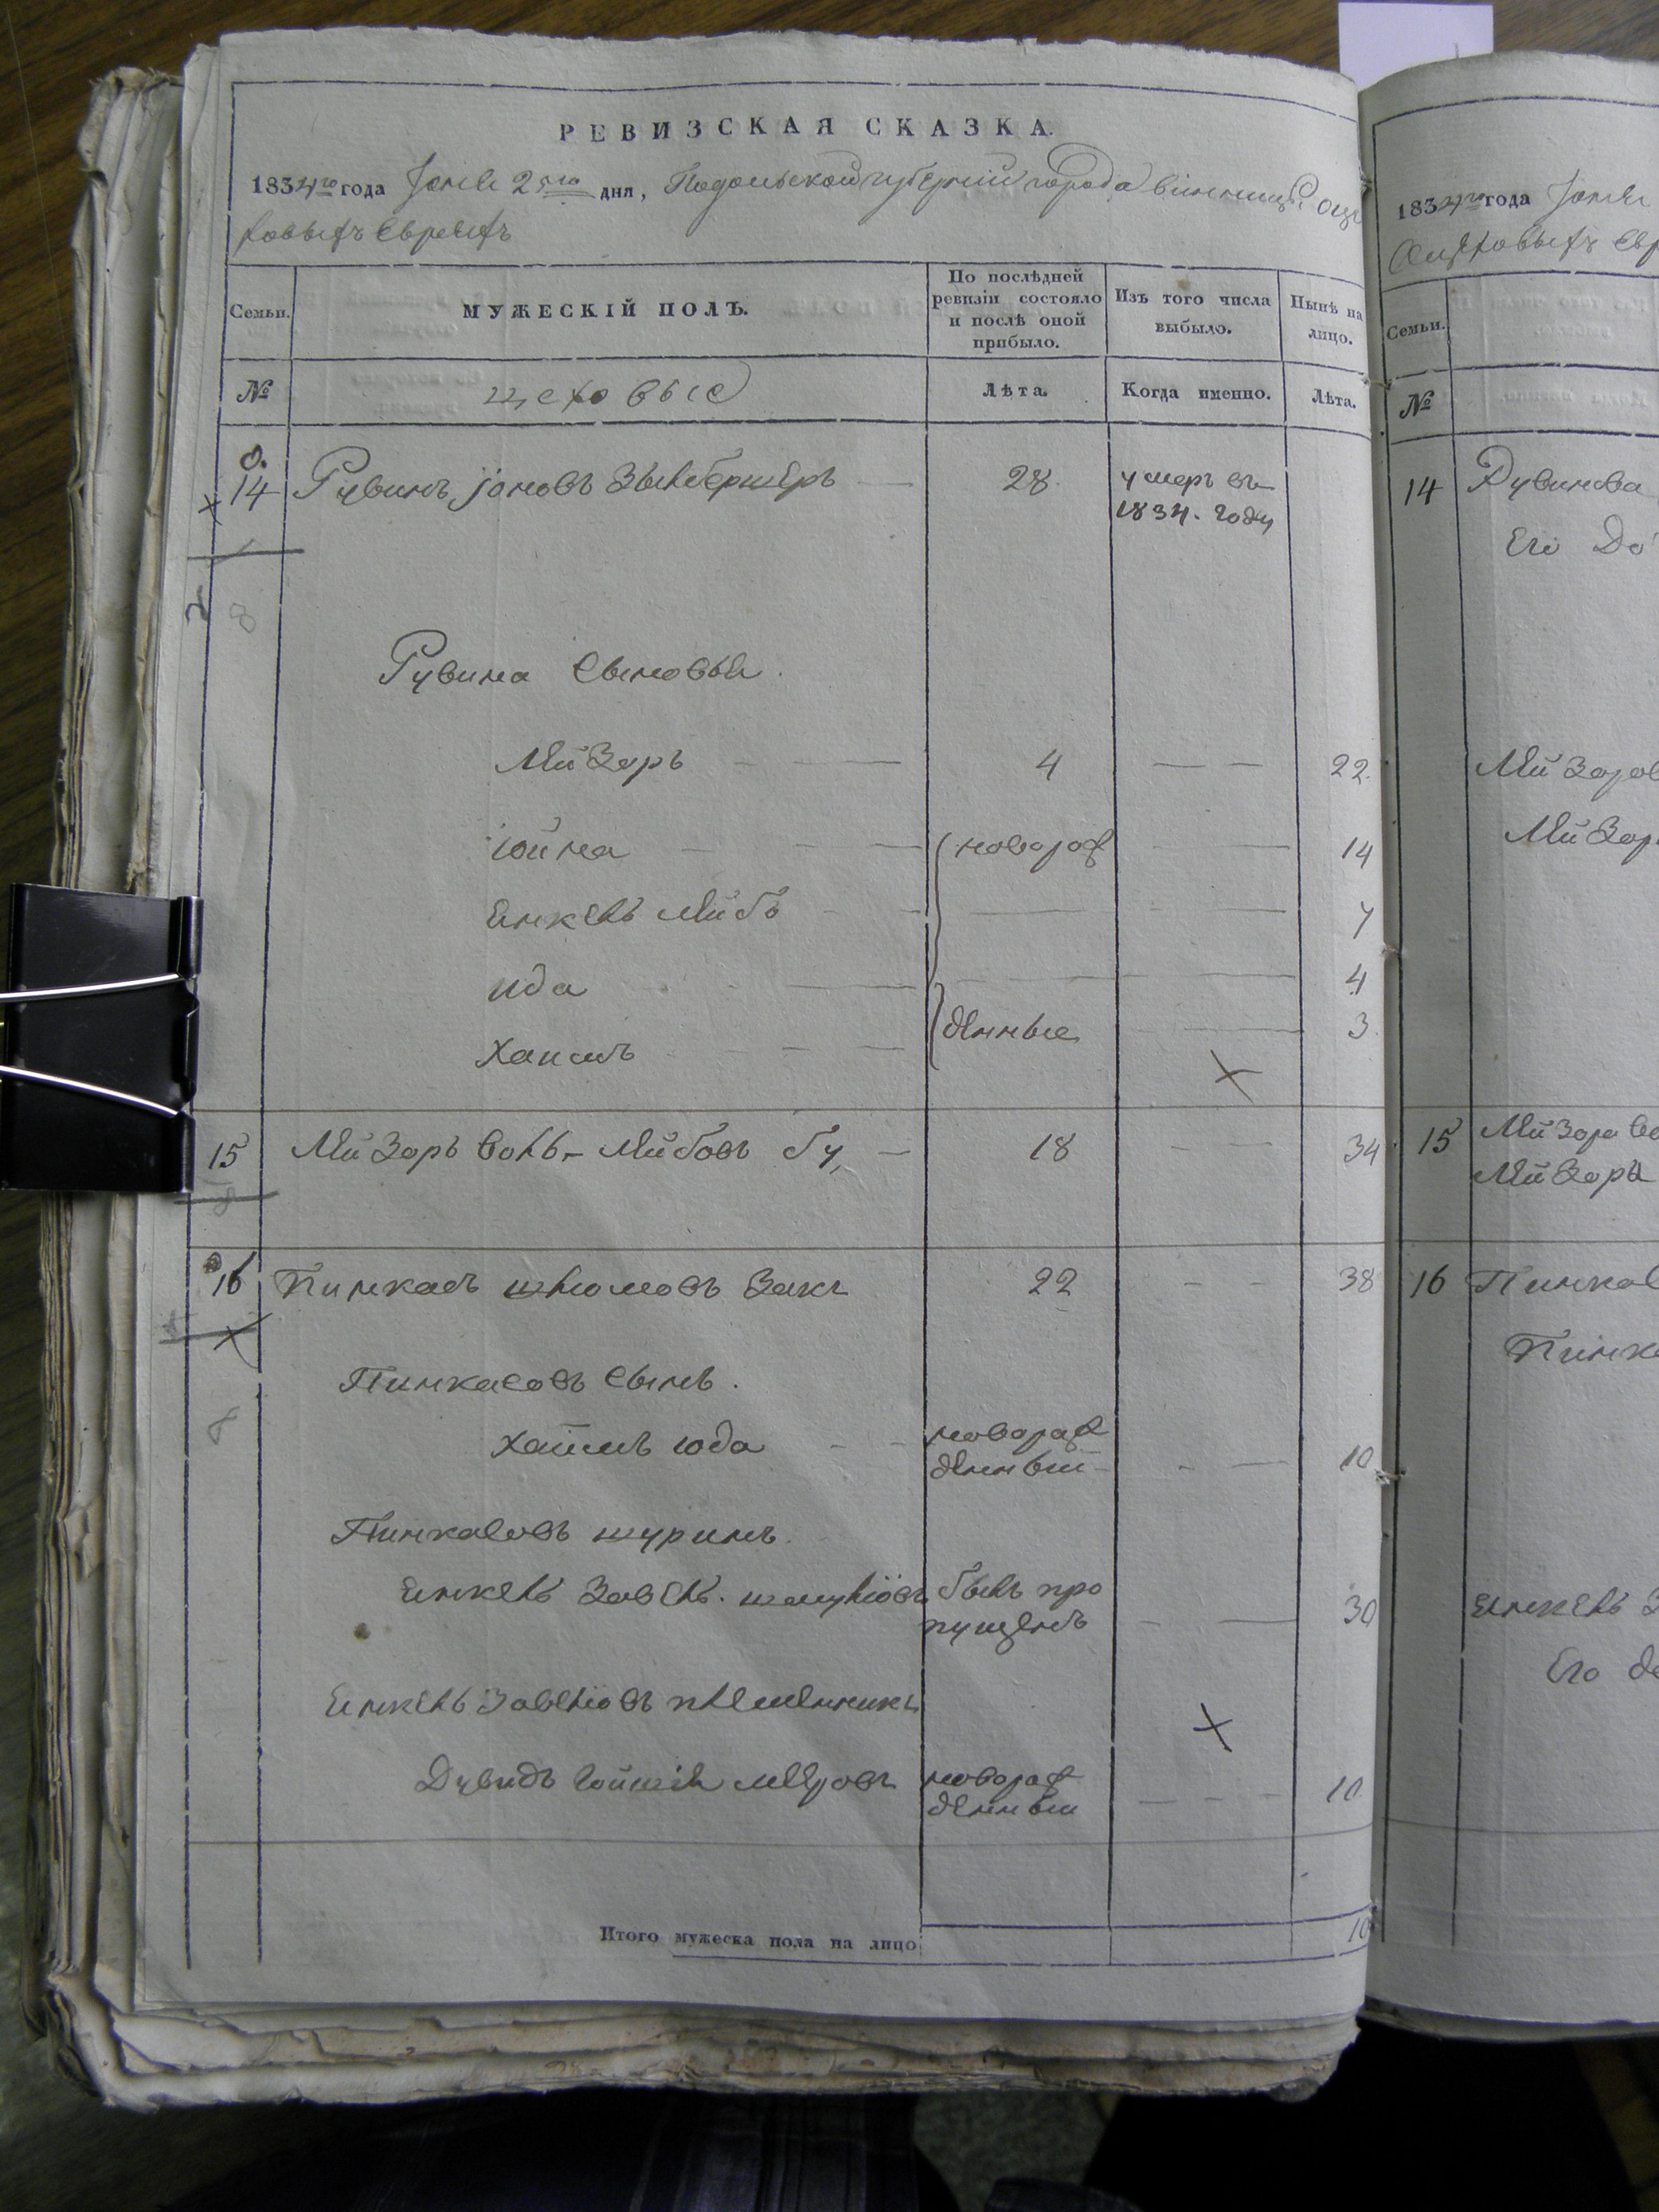 РЕВИЗСКАЯ СКАЗКА.
1834го года Іюня 25го дня, Подольской губерніи города Винницы о цѣ
ховыхъ Евреяхъ
Семьи. МУЖЕСКІЙ ПОЛЪ. По послѣдней ревизіи состояло и послѣ оной прибыло. Изъ того числа выбыло. Нынѣ на лицо.
№ цеховые Лѣта. Когда именно. Лѣта.
14 Рувинъ 28 умеръ въ
1834. году
Рувина сыновья.
Лейзоръ 4 22
Іойна новорож 14
Янкель Лейбъ 7
Юда 4
Хаимъ денные 3
15 Лейзоръ Воль-Лейбовъ 18 34
16 Пинкасъ Шломовъ Закъ 22 38
Пинкасовъ сынъ.
Хаимъ Юда новорож
денный 10
Пинкасовъ шуринъ
Янкель Завель. Шмулiовъ былъ про
пущенъ 30
Янкель Завелiовъ племянникъ
Дувидъ новорож
денный 10
Итого мужеска пола на лицо 10
1834го года Іюня
Цѣховыхъ Евр
Семьи.
№
14 Рувинова
Его до
Лейзоров
Лейзор
15 Лейзора Во
Лейзора
16 Пинкас
Пинка
Янкель З
Его до